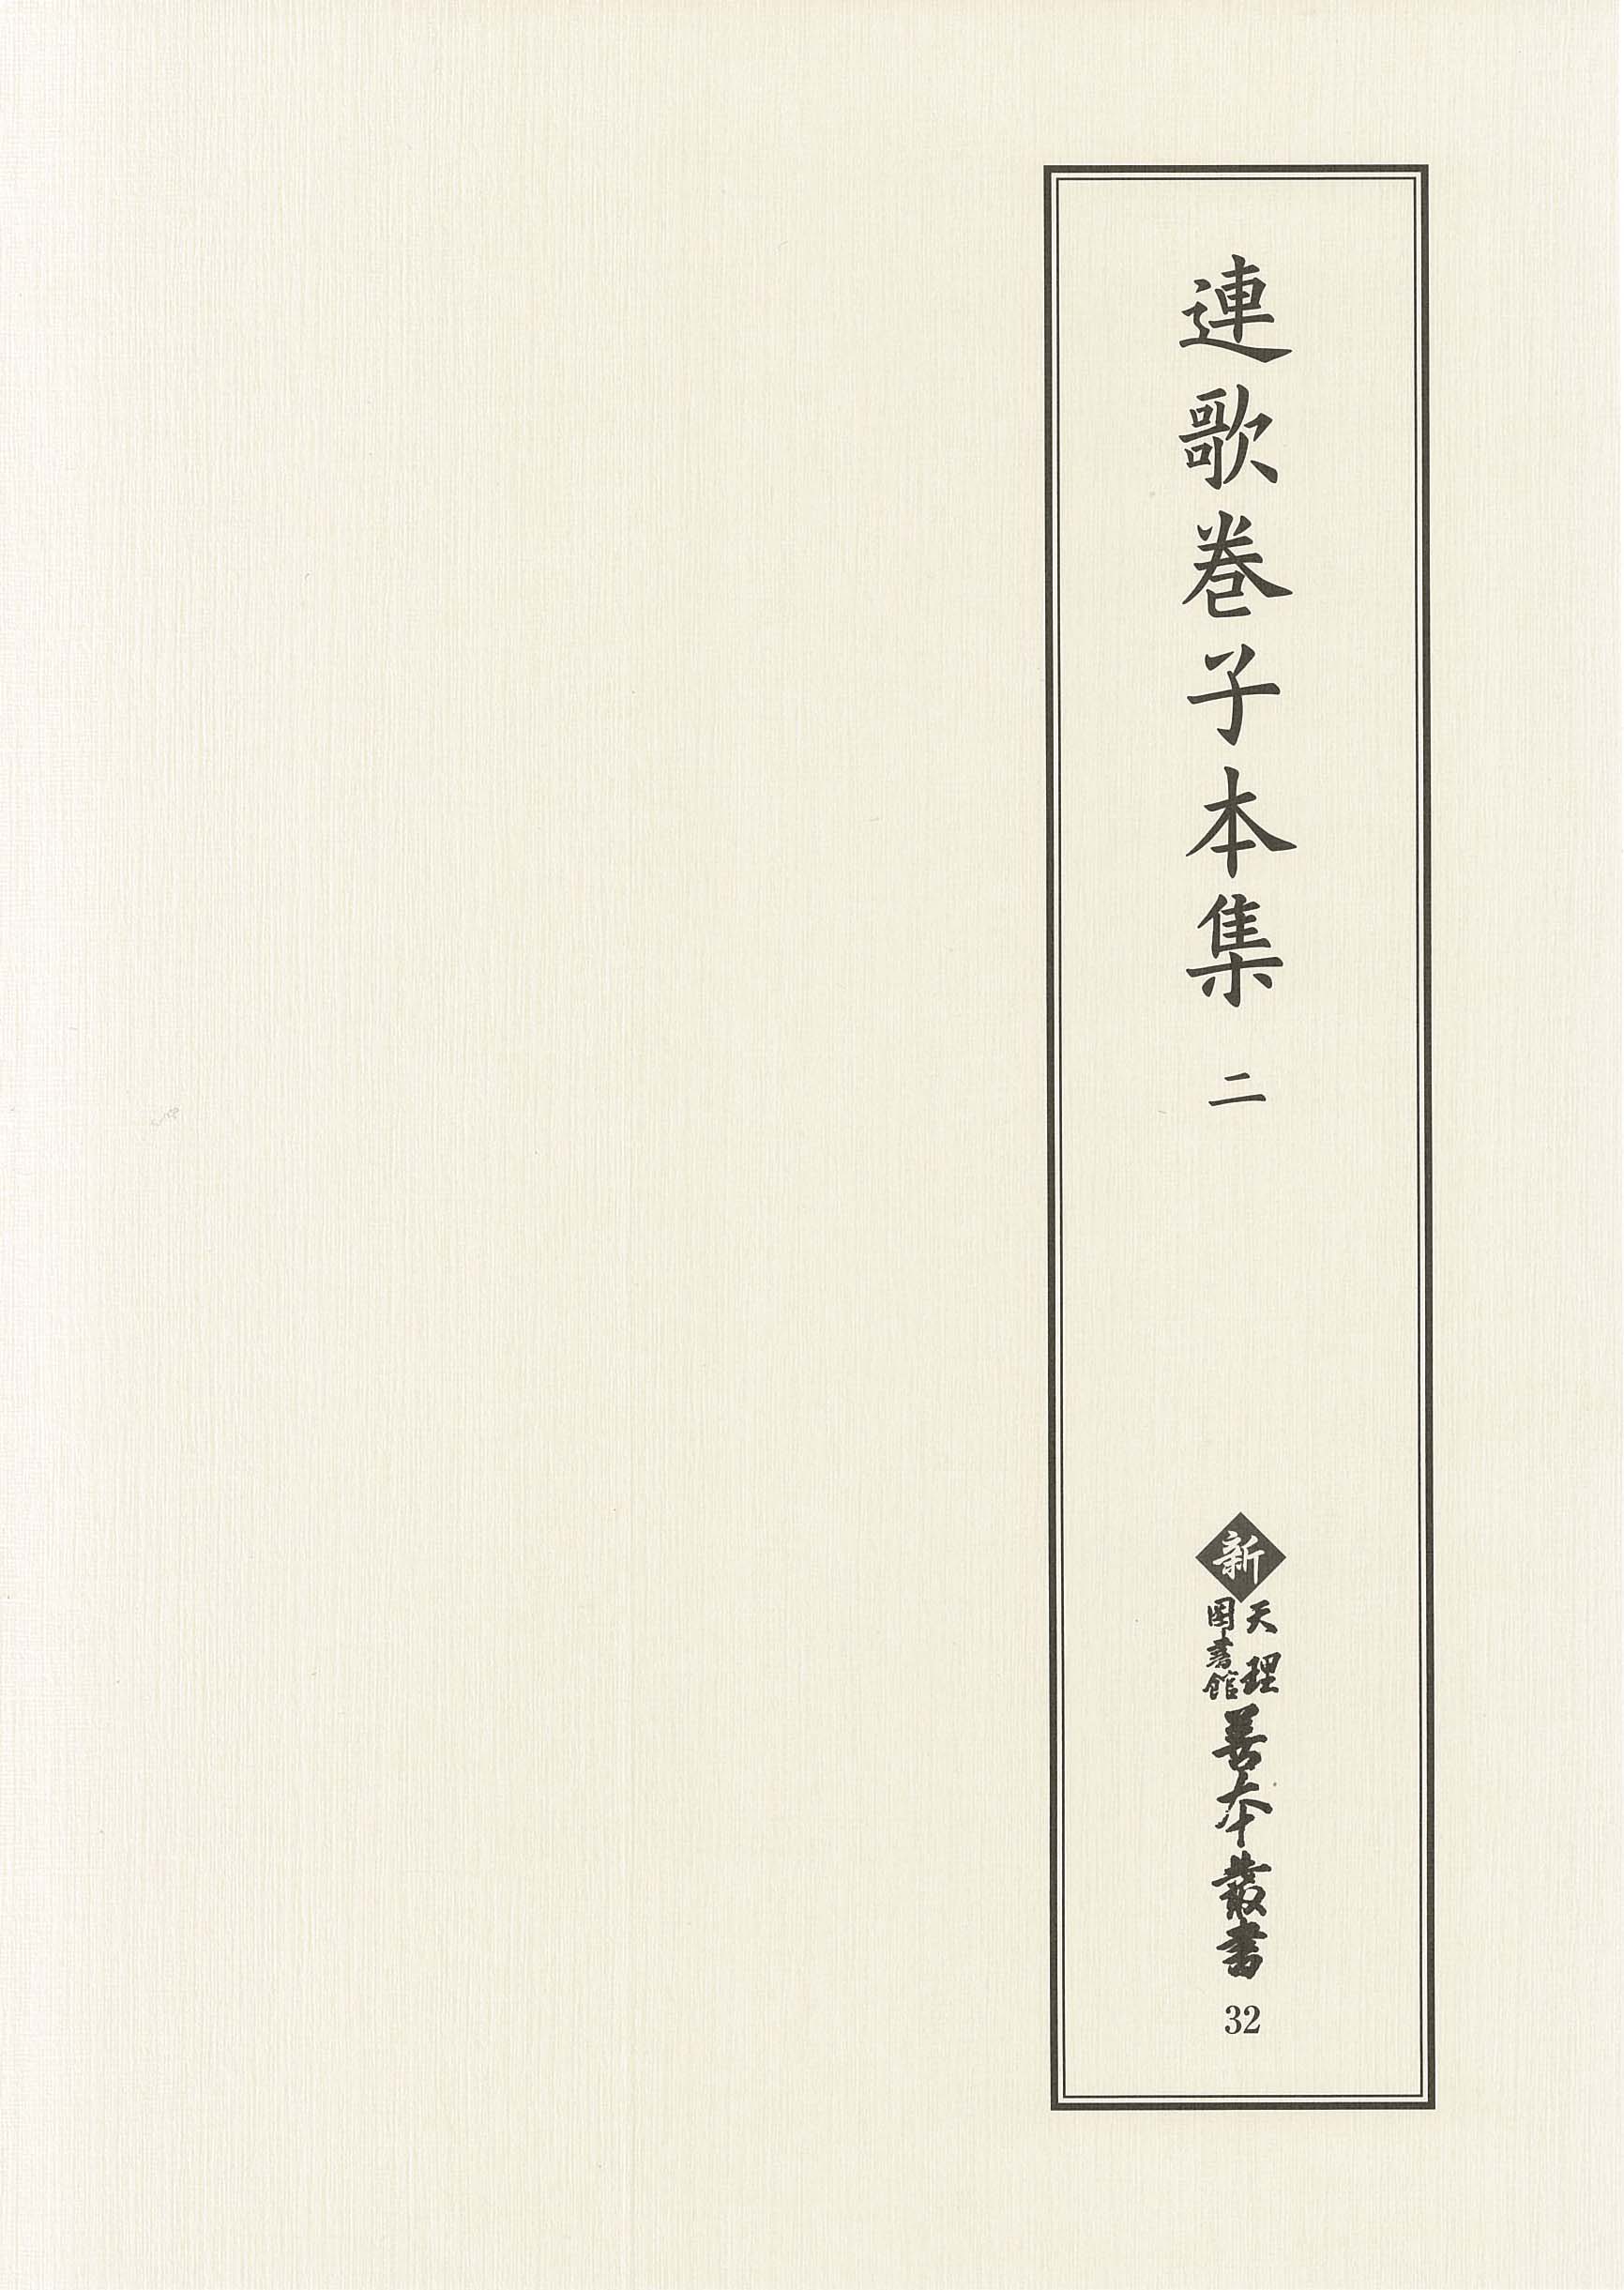 連歌巻子本集 二
新
天理
図書館
善本叢書
32